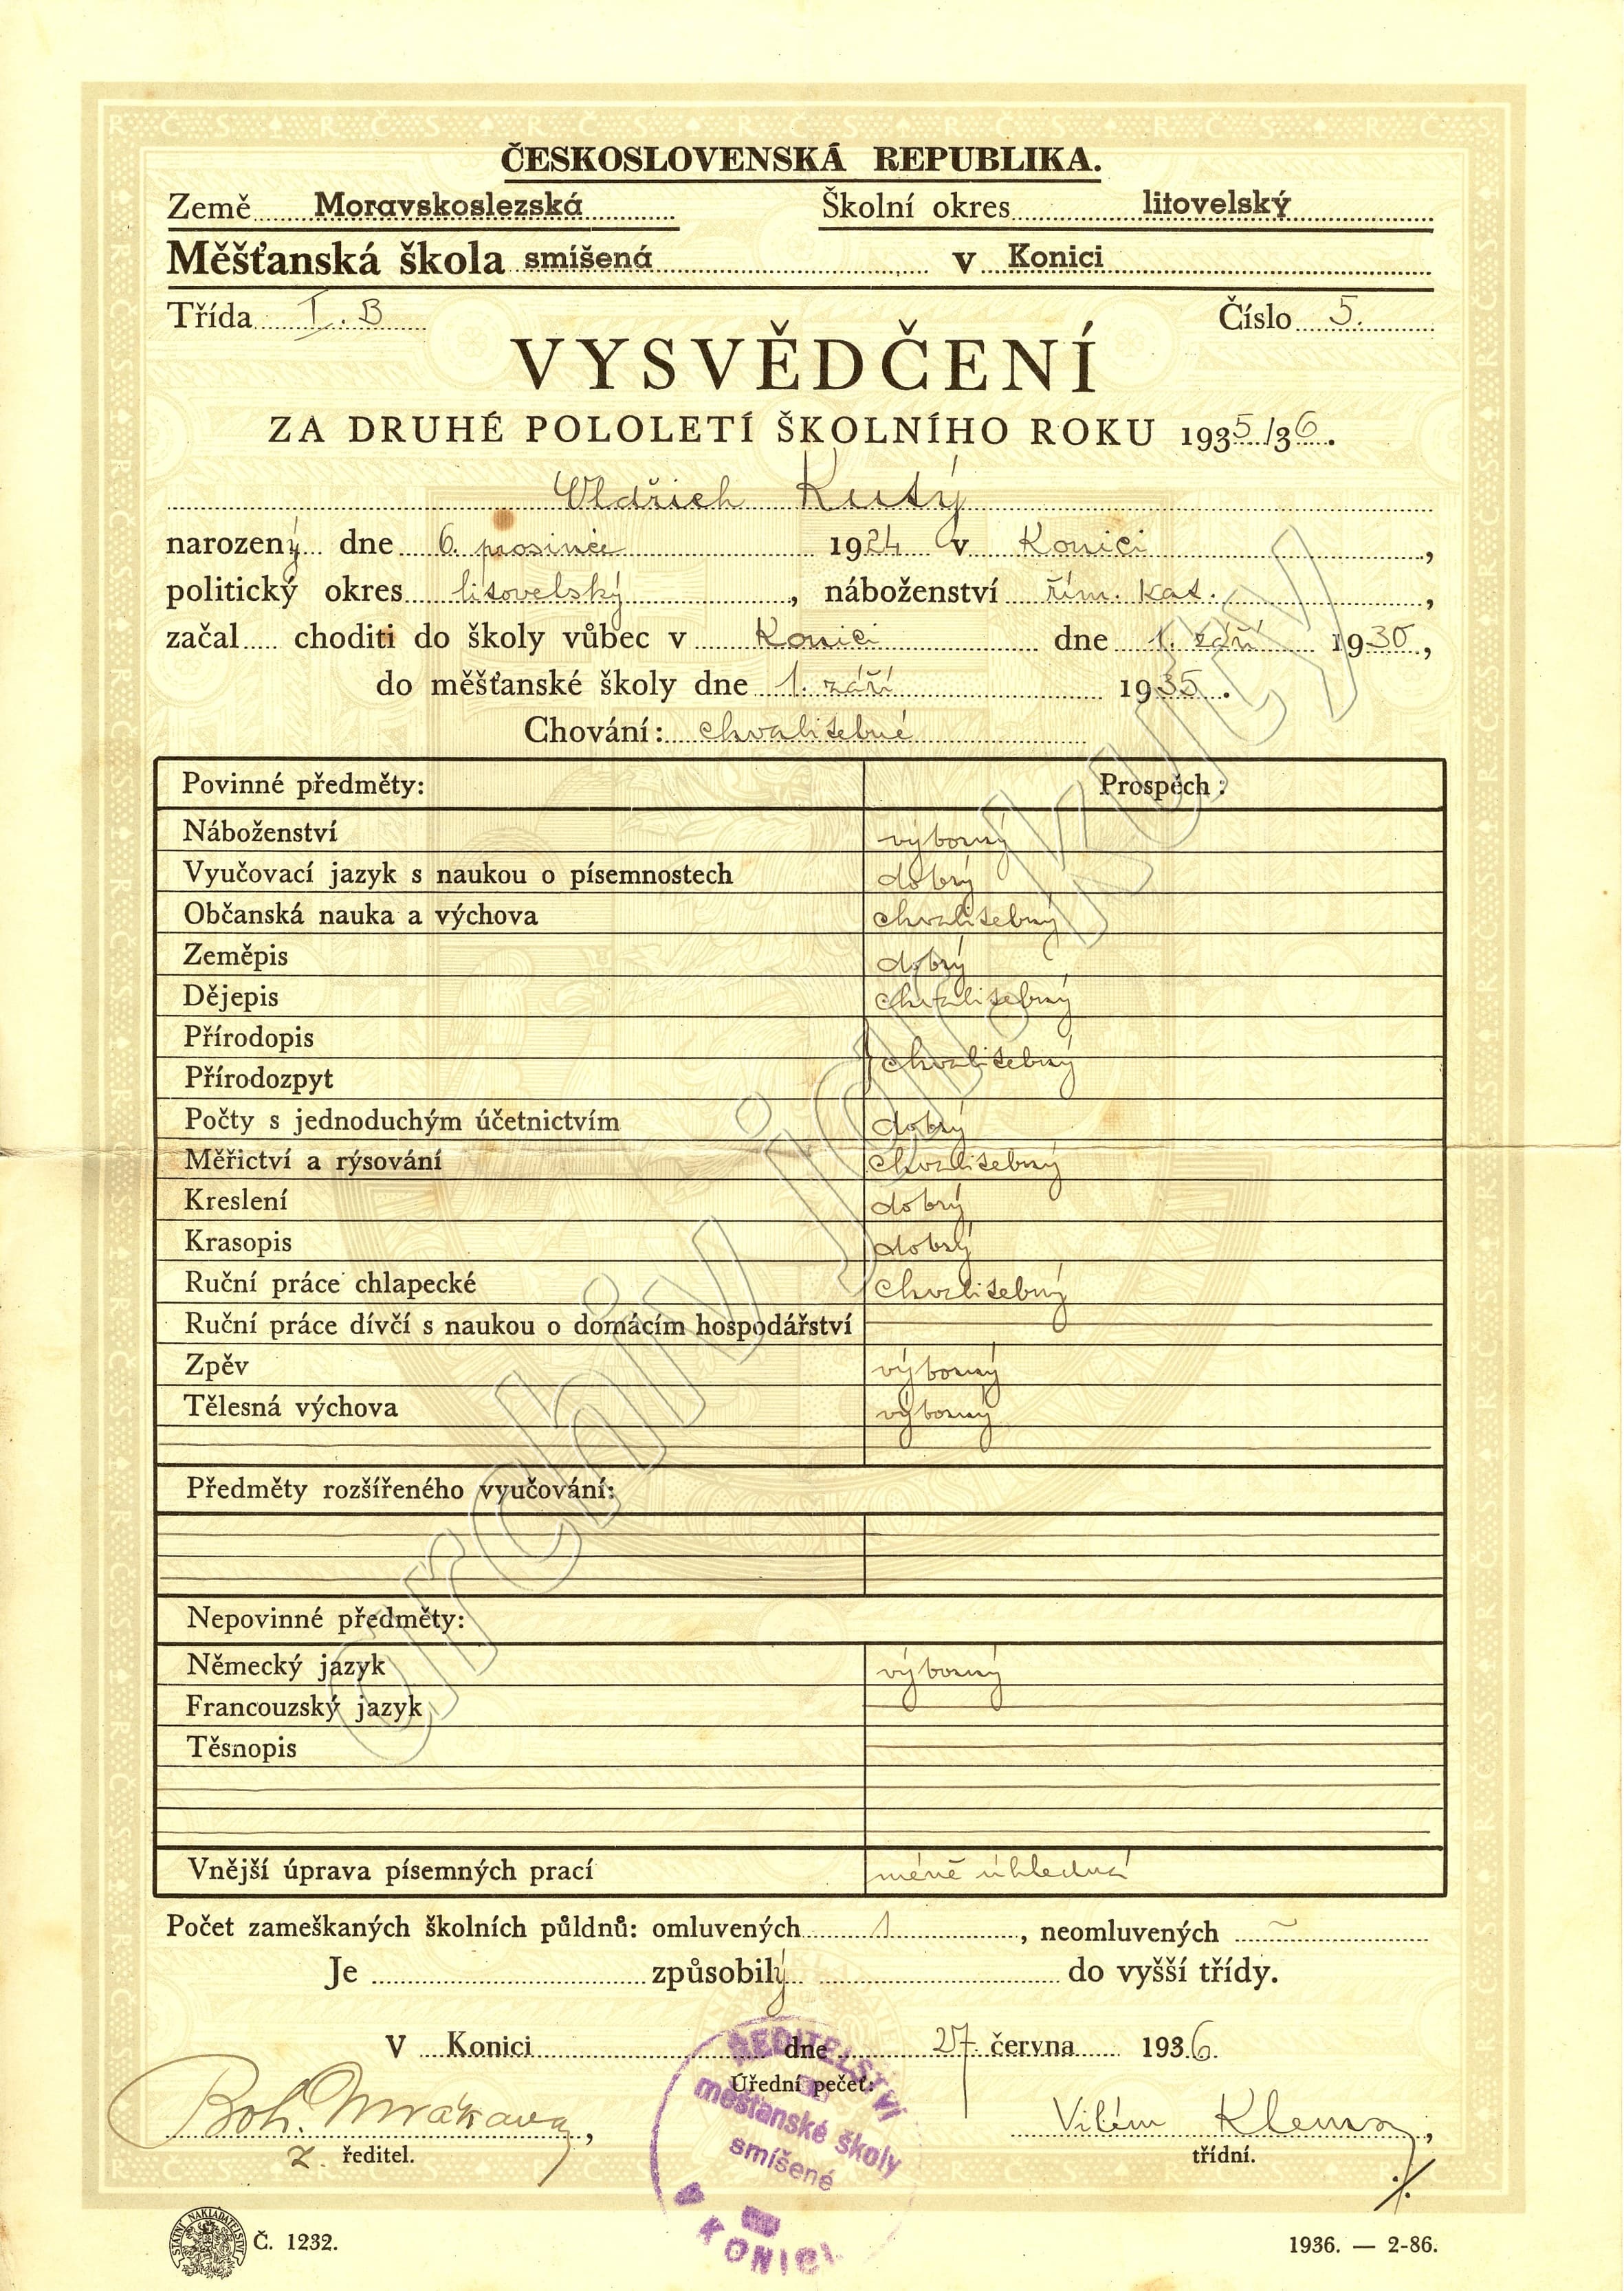 ČESKOSLOVENSKÁ REPUBLIKA.
Země Moravskoslezská Školní okres litovelský
Měšťanská škola smíšená v Konici
Třída I. B Číslo 5.
VYSVĚDČENÍ
ZA DRUHÉ POLOLETÍ ŠKOLNÍHO ROKU 1935/36.
Oldřich Kutý
narozený dne 6. prosince 1924 v Konici,
politický okres litovelský, náboženství řím. kat.,
začal choditi do školy vůbec v Konici dne 1. září 1930,
do měšťanské školy dne 1. září 1935.
Chování: chvalitebné
Povinné předměty: Prospěch:
Náboženství výborný
Vyučovací jazyk s naukou o písemnostech dobrý
Občanská nauka a výchova chvalitebný
Zeměpis dobrý
Dějepis chvalitebný
Přírodopis
chvalitebný
Přírodozpyt
Počty s jednoduchým účetnictvím dobrý
Měřictví a rýsování chvalitebný
Kreslení dobrý
Krasopis dobrý
Ruční práce chlapecké chvalitebný
Ruční práce dívčí s naukou o domácím hospodářství
Zpěv výborný
Tělesná výchova výborný
Předměty rozšířeného vyučování:
Nepovinné předměty:
Německý jazyk výborný
Francouzský jazyk
Těsnopis
Vnější úprava písemných prací méně úhledná
Počet zameškaných školních půldnů: omluvených 1, neomluvených –
Je způsobilý do vyšší třídy.
V Konici dne 27. června 1936.
Úřední pečeť:
ŘEDITELSTVÍ
měšťanské školy
smíšené
V KONICI
Boh. , Vilém ,
z. ředitel. třídní.
STÁTNÍ NAKLADATELSTVÍ
Č. 1232. 1936. — 2-86.
archiv jar. kutý